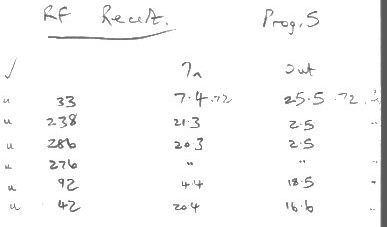 RF Recert. Prog. S
✓ In Out
" 33 7.4.72 25.5.72
" 238 21.3 2.5
" 286 20.3 2.5
" 276 " "
" 92 4.4 18.5 "
" 42 20.4 16.6 "